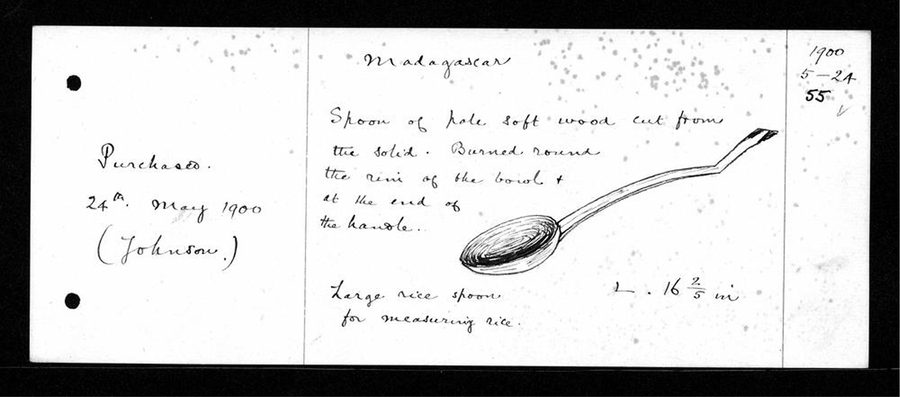 Purchased.
24th. May 1900
(Johnson.)
Madagascar
Spoon of pale soft wood cut from
the solid. Burned round
the rim of the bowl +
at the end of
the handle.
Large rice spoon
for measuring rice.
L. 16 2/5 in
1900
5-24
55